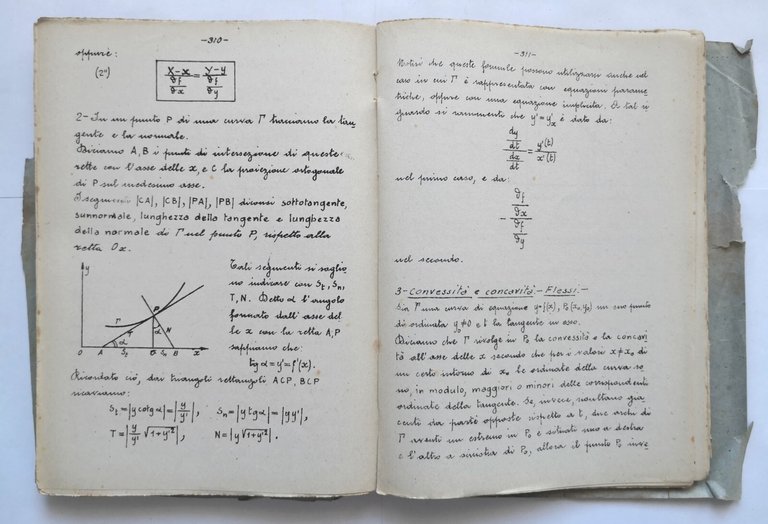 -310-
oppure:
(2")
X-x / ∂f/∂x = Y-y / ∂f/∂y
2- In un punto P di una curva Γ tracciamo la tan_
gente e la normale.
Diciamo A, B i punti di intersezione di queste
rette con l'asse delle x, e C la proiezione ortogonale
di P sul medesimo asse.
I segmenti |CA|, |CB|, |PA|, |PB| diconsi sottotangente,
sunnormale, lunghezza della tangente e lunghezza
della normale di Γ nel punto P, rispetto alla
retta Ox.
y
Γ P
T α N
α
O A St C Sn B x
Tali segmenti si soglio_
no indicare con St, Sn,
T, N. Detto α l'angolo
formato dall'asse del_
le x con la retta A,P
sappiamo che:
tg α = y' = f'(x).
Ricordato ciò, dai triangoli rettangoli ACP, BCP
ricaviamo:
St = |y cotg α| = |y/y'|, Sn = |y tg α| = |yy'|,
T = |y/y' √1+y'²|, N = |y √1+y'²|,
-311-
Notisi che queste formule possono utilizzarsi anche nel
caso in cui Γ è rappresentata con equazioni parame_
triche, oppure con una equazione implicita. A tal ri
guardo si rammenti che y' = y'x è dato da:
dy/dt / dx/dt = y'(t)/x'(t)
nel primo caso, e da:
- ∂f/∂x / ∂f/∂y
nel secondo.
3- Convessità e concavità.- Flessi.-
Sia Γ una curva di equazione y=f(x), P₀(x₀,y₀) un suo punto
di ordinata y≠0 e t la tangente in esso.
Diciamo che Γ rivolge in P₀ la convessità o la concavi
tà all'asse delle x secondo che per i valori x≠x₀ di
un certo intorno di x₀ le ordinate della curva so_
no, in modulo, maggiori o minori delle corrispondenti
ordinate della tangente. Se, invece, risultano gia_
centi da parte opposte rispetto a t, due archi di
Γ aventi un estremo in P₀ e situati uno a destra
e l'altro a sinistra di P₀, allora il punto P₀ inve_